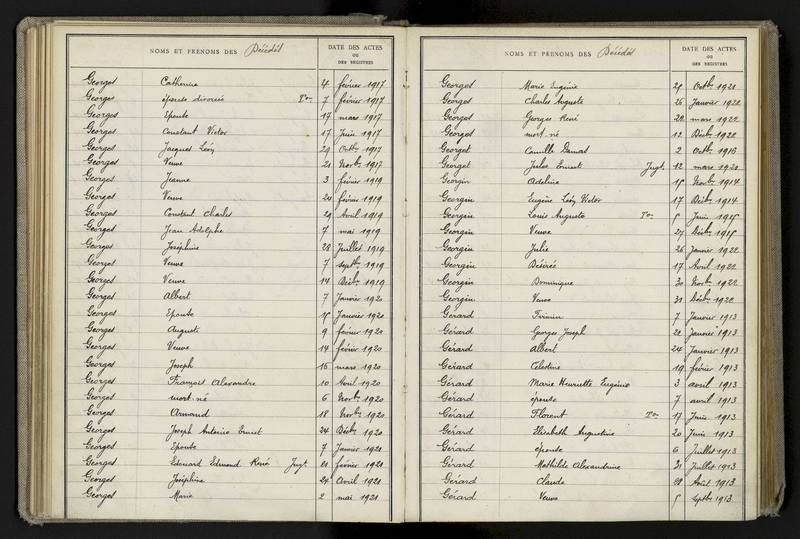 NOMS ET PRÉNOMS DES Décédés
DATE DES ACTES
OU
DES REGISTRES
Georges Catherine 4 février 1917
Georges épouse divorcée Ton 7 février 1917
Georges Epouse 17 mars 1917
Georges Constant Victor 17 Juin 1917
Georges Jacques Léon 29 Octb. 1917
Georges Veuve 21 Novb. 1917
Georges Jeanne 3 février 1919
Georges Veuve 24 février 1919
Georges Constant Charles 29 Avril 1919
Georges Jean Adolphe 7 mai 1919
Georges Joséphine 28 Juillet 1919
Georges Veuve 7 septb. 1919
Georges Veuve 14 Décb. 1919
Georges Albert 7 Janvier 1920
Georges Epouse 15 Janvier 1920
Georges Auguste 9 février 1920
Georges Veuve 14 février 1920
Georges Joseph 16 mars 1920
Georges François Alexandre 10 Avril 1920
Georges mort-né 6 Novb. 1920
Georges Armand 18 Novb. 1920
Georges Joseph Antoine Ernest 24 Décb. 1920
Georges Epouse 7 Janvier 1921
Georges Edouard Edmond René Jugt. 21 février 1921
Georges Joséphine 29 Avril 1921
Georges Marie 2 mai 1921
NOMS ET PRÉNOMS DES Décédés
DATE DES ACTES
OU
DES REGISTRES
Georges Marie Eugénie Octb. 1921
Georges Charles Auguste 26 Janvier 1922
Georges Georges René 22 mars 1922
Georges mort-né 12 Décb. 1922
Georget Camille 2 Octb. 1916
Georget Jules Ernest Jugt. 12 mars 1920
Georgin Adeline 15 Novb. 1914
Georgin Eugène Léon Victor 17 Décb. 1914
Georgin Louis Auguste Ton 5 Juin 1915
Georgin Veuve 27 Décb. 1915
Georgin Julie 26 Janvier 1922
Georgin Désiré 17 Avril 1922
Georgin Dominique 30 Novb. 1922
Georgin Veuve 31 Décb. 1922
Gérard Firmin 7 Janvier 1913
Gérard Georges Joseph 22 Janvier 1913
Gérard Albert 24 Janvier 1913
Gérard Célestine 19 février 1913
Gérard Marie Henriette Eugénie 3 avril 1913
Gérard épouse 7 avril 1913
Gérard Florent Ton 17 Juin 1913
Gérard Elisabeth Augustine 20 Juin 1913
Gérard épouse 6 Juillet 1913
Gérard Mathilde Alexandrine 31 Juillet 1913
Gérard Claude 28 Août 1913
Gérard Veuve 5 Septb. 1913